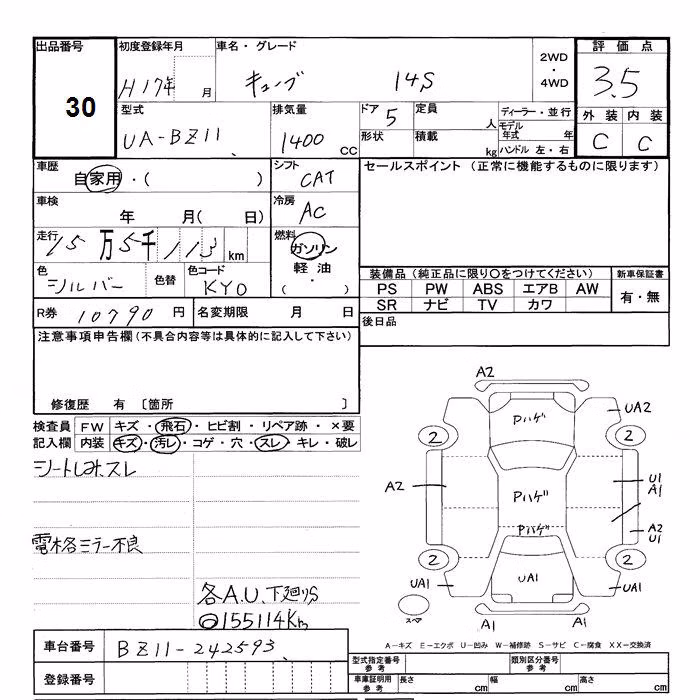 出品番号 初度登録年月 車名・グレード 2WD・4WD 評価点
30 H17年 月 キューブ 14S 3.5
型式 排気量 ドア 5 定員 人 ディーラー・並行 外装 内装
UA-BZ11 1400 CC 形状 積載 kg モデル年式 年 ハンドル 左・右 C C
車歴 シフト セールスポイント (正常に機能するものに限ります)
自家用・( ) CAT
車検 冷房
年 月( 日) AC
走行 燃料
15万5千113km ガソリン
色 色替 色コード 軽油
シルバー KY0 ( ・ )
装備品(純正品に限り○をつけてください) 新車保証書
PS PW ABS エアB AW 有・無
SR ナビ TV カワ
R券 10790 円 名変期限 月 日 後日品
注意事項申告欄(不具合内容等は具体的に記入して下さい)
修復歴 有 〔箇所 〕
検査員 FW キズ・飛石・ヒビ割・リペア跡・×要
記入欄 内装 キズ・汚レ・コゲ・穴・スレ・キレ・破レ
シートしみ、スレ
電格ミラー不良
各A.U、下廻りS
◎155114Km
A2
Pハゲ UA2
2 2
A2 Pハゲ U1
A1
Pハゲ A2
U1
2 2
UA1 UA1 UA1
スペア A1 A1
A−キズ E−エクボ U−凹み W−補修跡 S−サビ C−腐食 XX−交換済
車台番号 BZ11-242593
型式指定番号 参考 類別区分番号 参考
登録番号
車庫証明用 参考 長さ cm 幅 cm 高さ cm